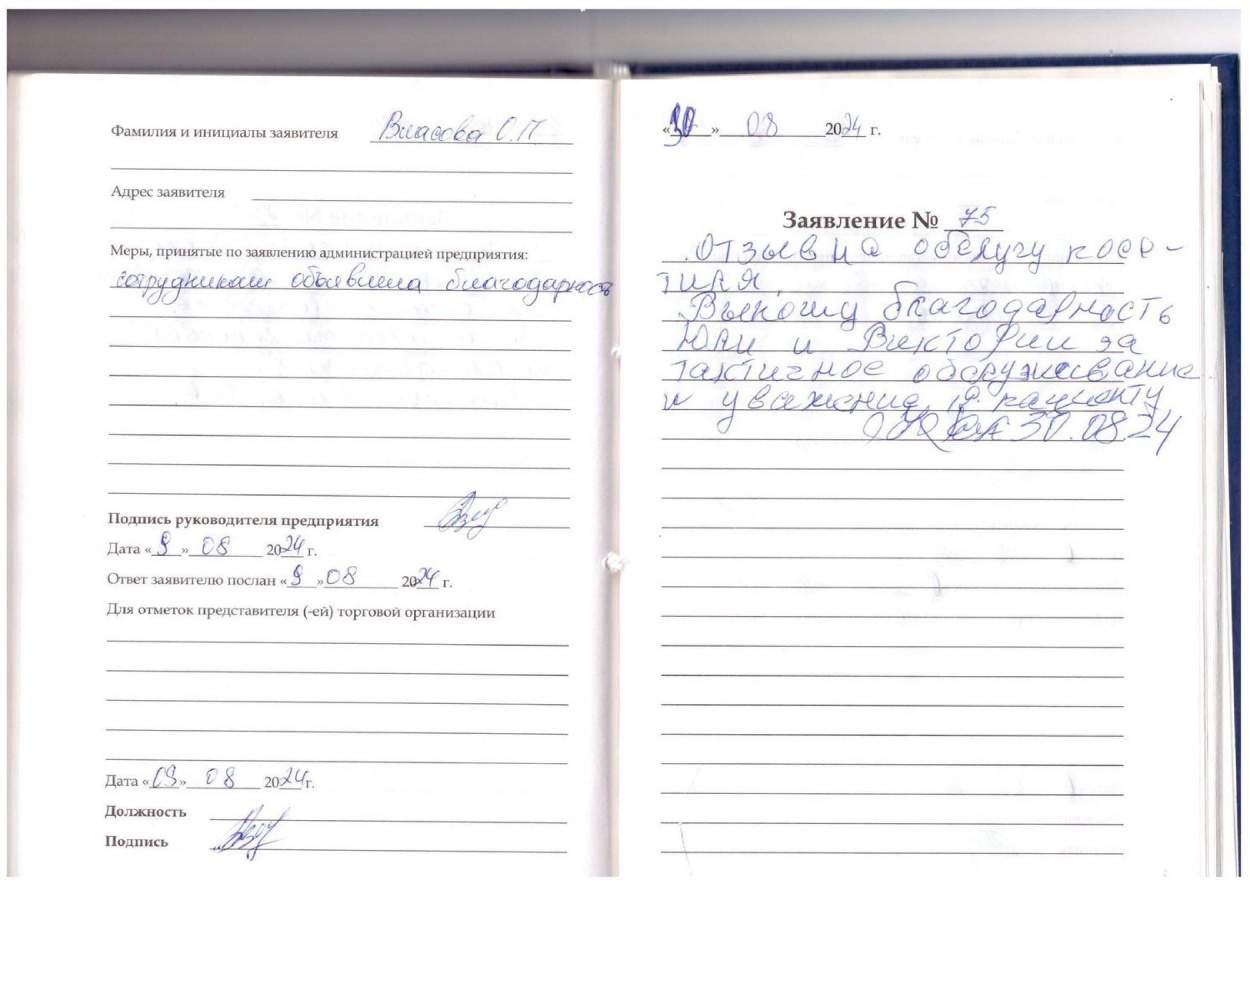 Фамилия и инициалы заявителя Власова О.П.
Адрес заявителя
Меры, принятые по заявлению администрацией предприятия:
сотрудникам объявлена благодарность
Подпись руководителя предприятия
Дата «9» 08 2024 г.
Ответ заявителю послан «9» 08 2024 г.
Для отметок представителя (-ей) торговой организации
Дата «09» 08 2024 г.
Должность
Подпись
«30» 08 2024 г.
Заявление № 75
Отзыв на
Выношу благодарность
Юли и Виктории за
тактичное обслуживание
и уважение к пациенту
30.08.24